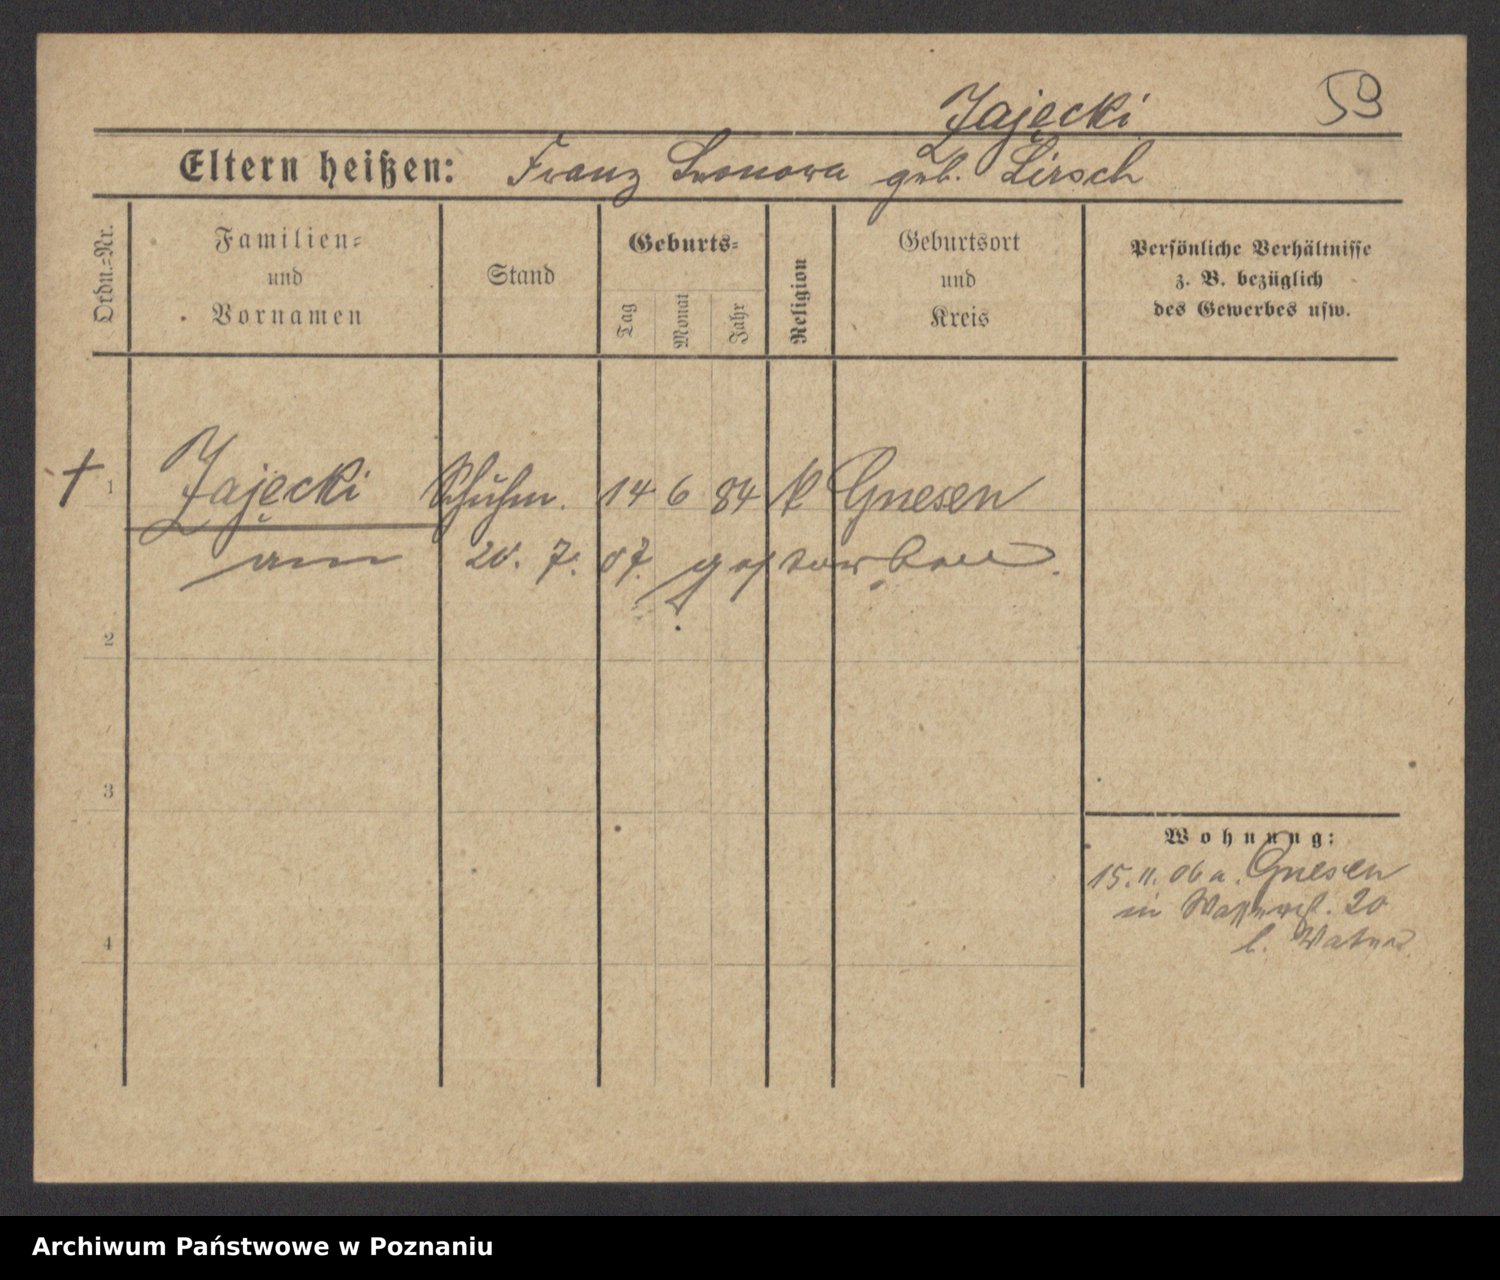 Zajęcki 59
Eltern heißen: Franz Leonora geb. Lirsch
Ordn.=Nr.
Familien= und Vornamen
Stand
Geburts=
Tag Monat Jahr
Religion
Geburtsort und Kreis
Persönliche Verhältnisse
z. B. bezüglich
des Gewerbes usw.
† 1 Zajęcki Schuhm. 14 6 84 k Gnesen
am 20. 7. 07. gestorben.
2
3
Wohnung:
15. 11. 06 a. Gnesen
in 20
b.
4
Archiwum Państwowe w Poznaniu